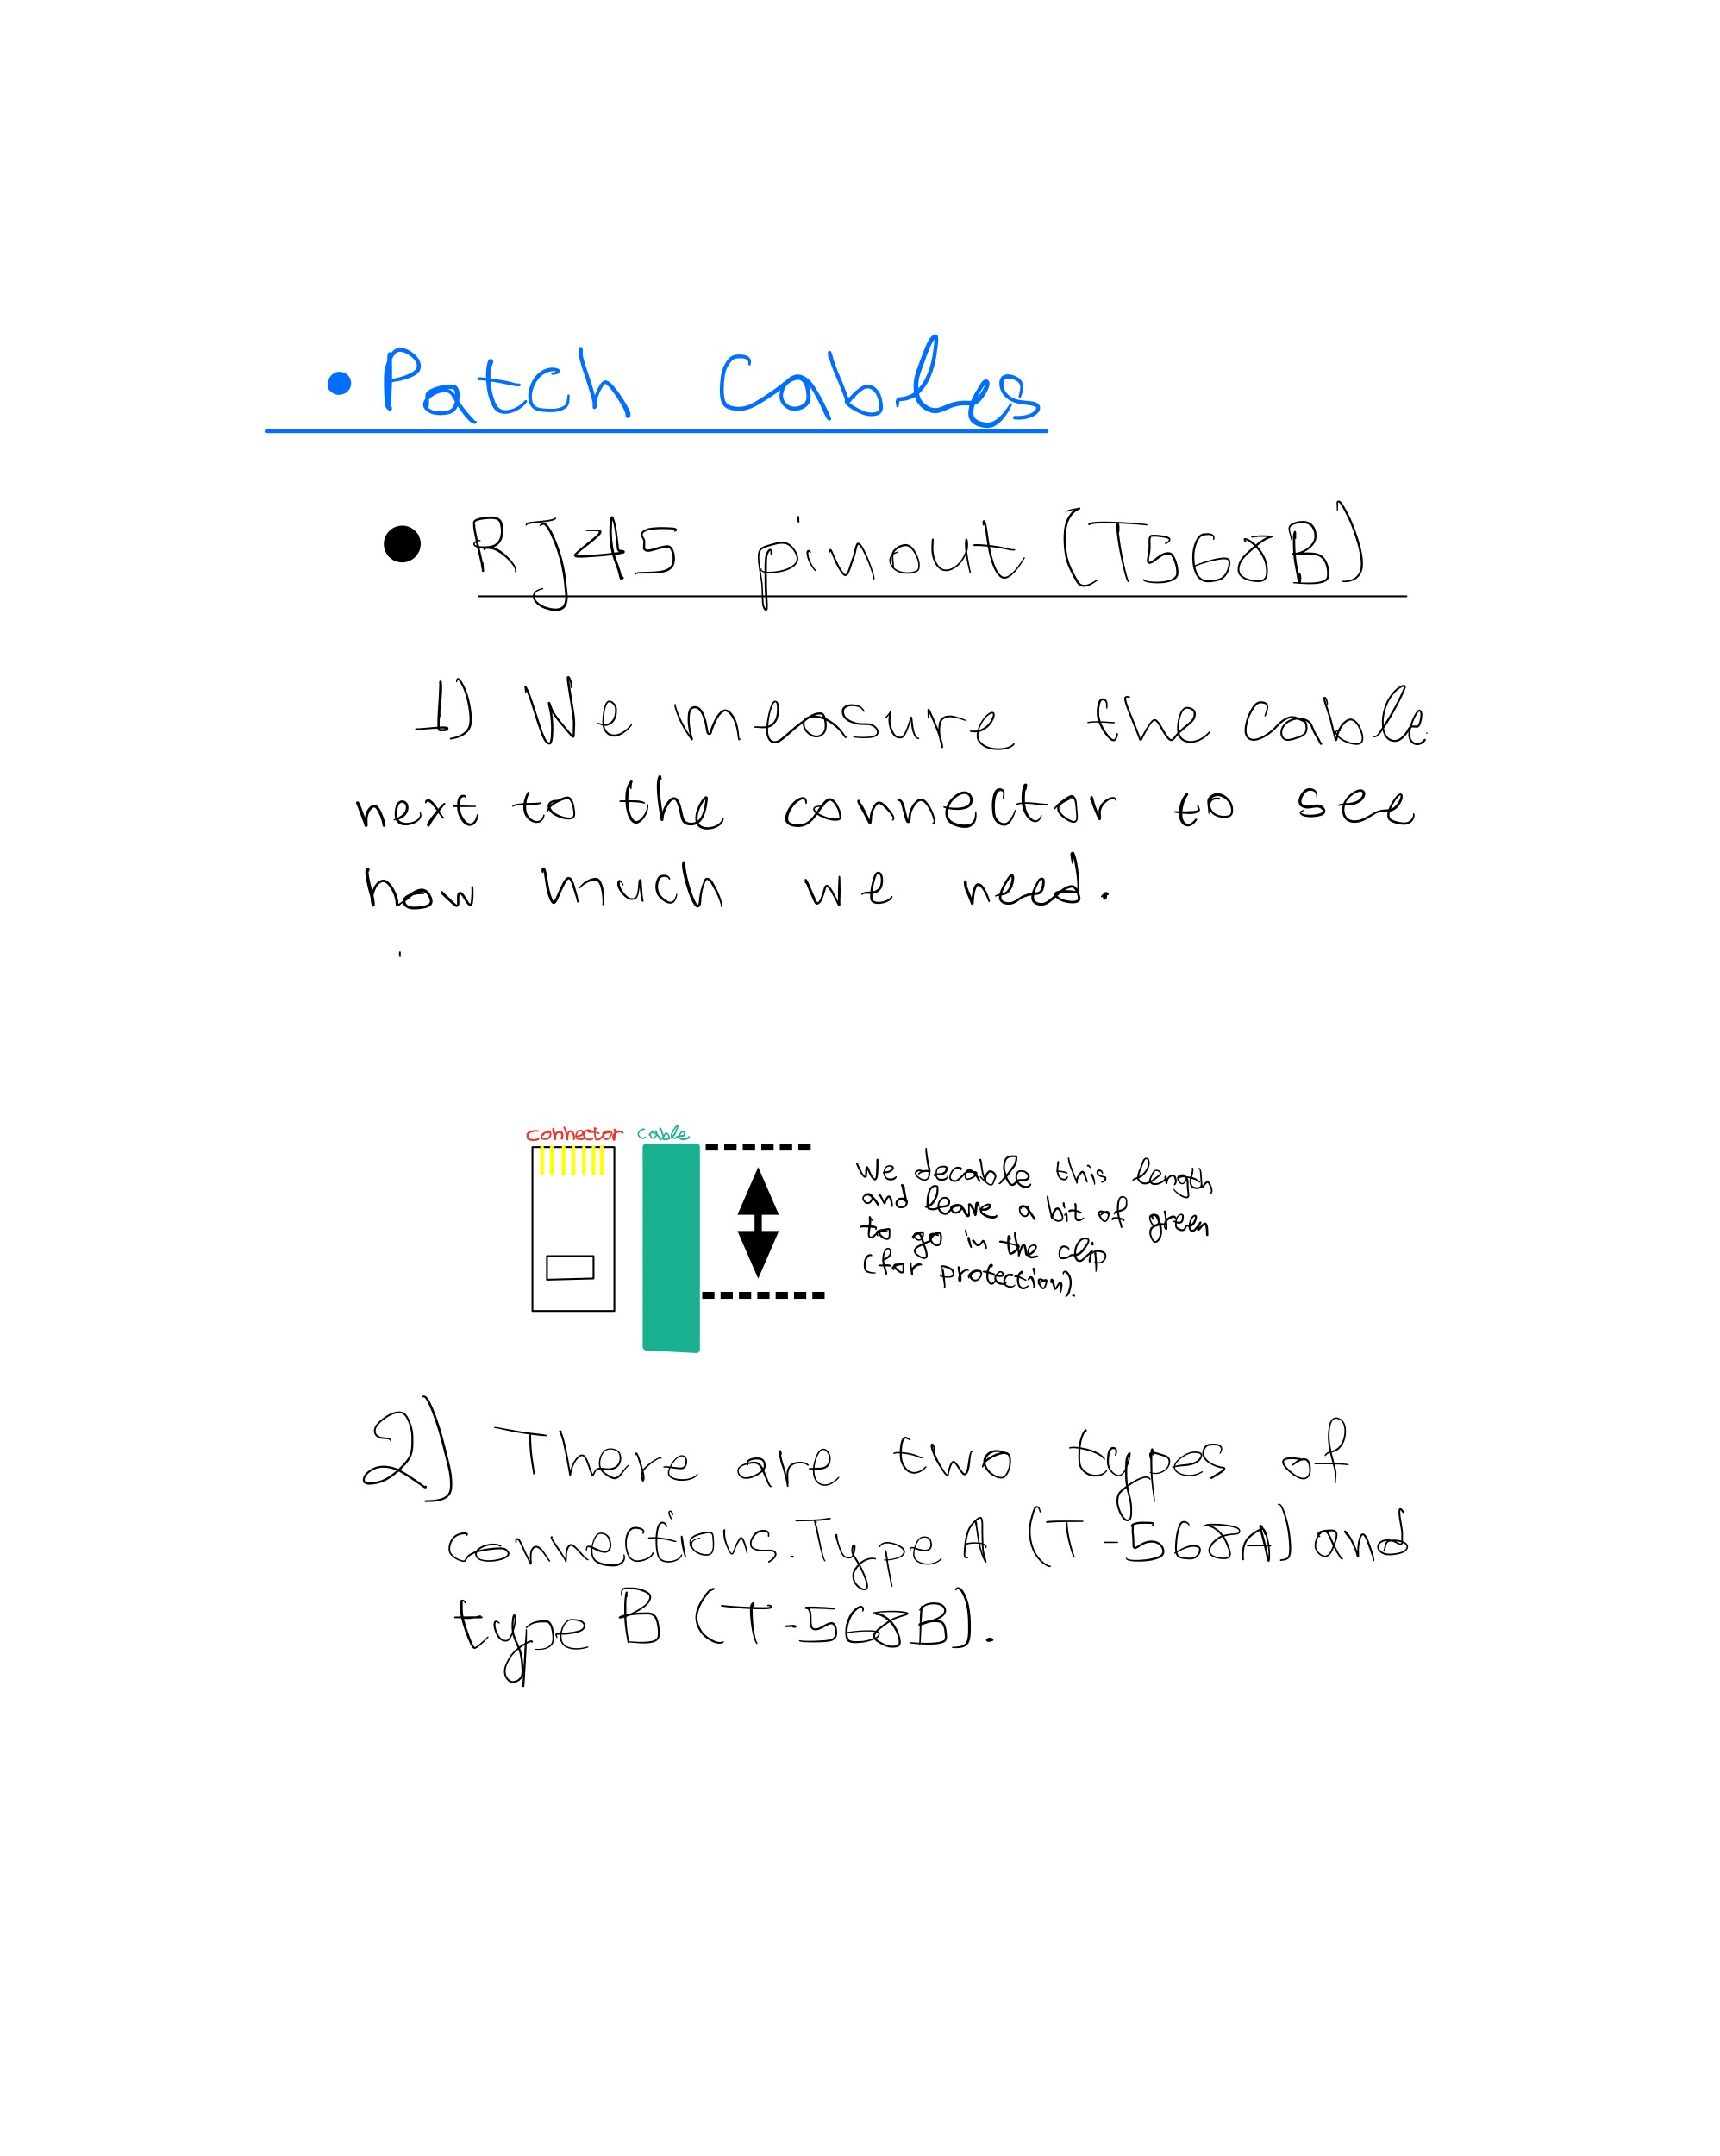 • Patch Cables
• RJ45 pinout (T568B)
1) We measure the cable
next to the connector to see
how much we need.
connector cable
We decable this length
and leave a bit of green
to go in the clip
(for protection).
2) There are two types of
connections. Type A (T-568A) and
type B (T-568B).